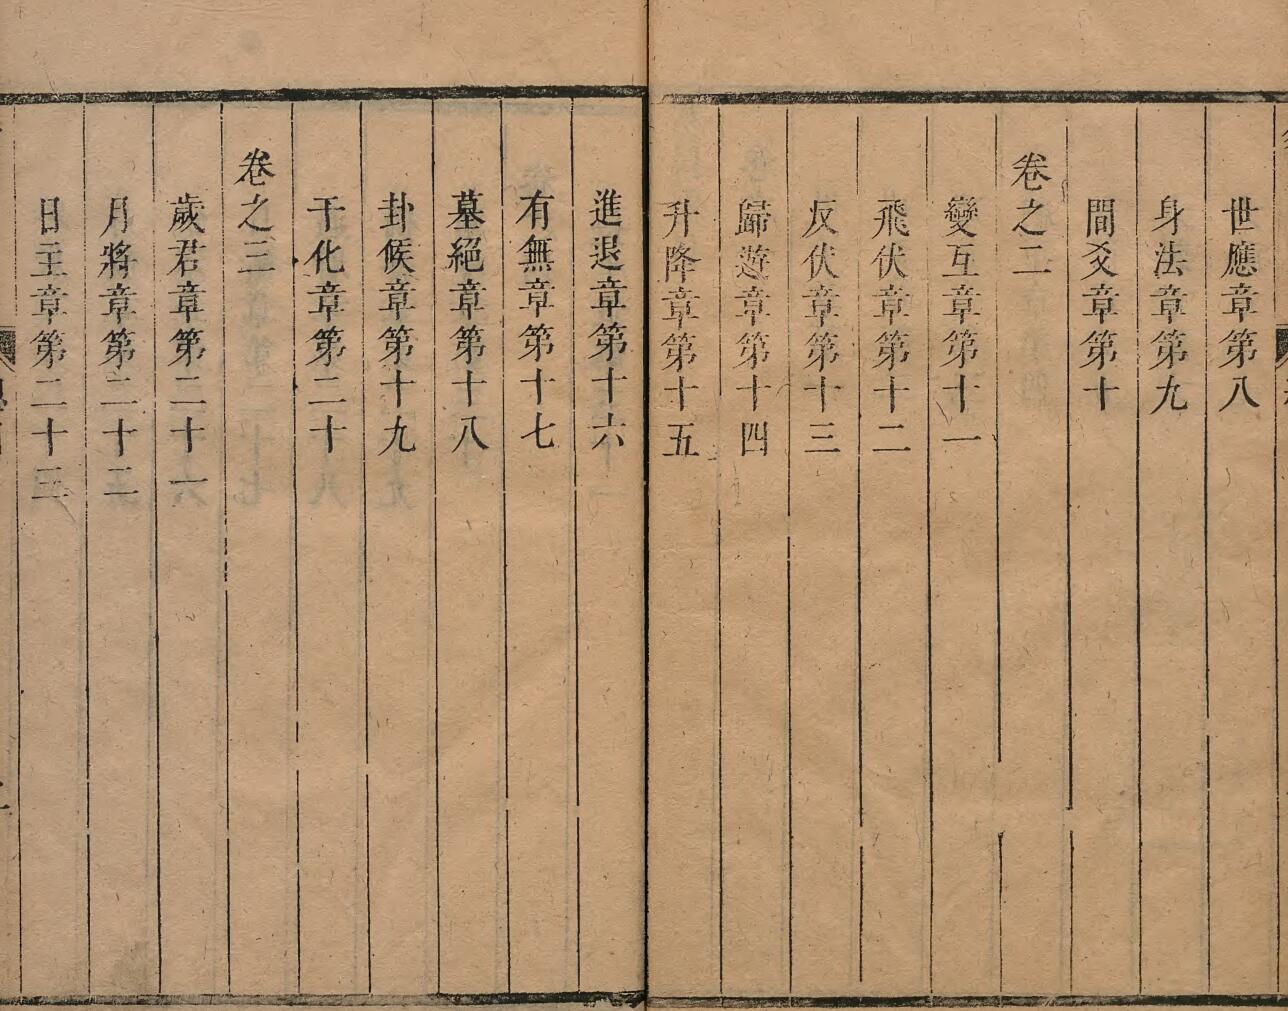 世應章第八
身法章第九
間爻章第十
卷之二
變互章第十一
飛伏章第十二
反伏章第十三
歸遊章第十四
升降章第十五
進退章第十六
有無章第十七
墓絕章第十八
卦候章第十九
干化章第二十
卷之三
歲君章第二十一
月將章第二十二
日主章第二十三